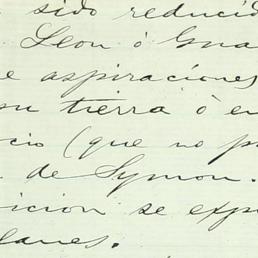 sido reducid
Leon ó Gua
e aspiraciones
su tierra ó en
cio (que no p
. de Symon.
icion se exp
lanes.